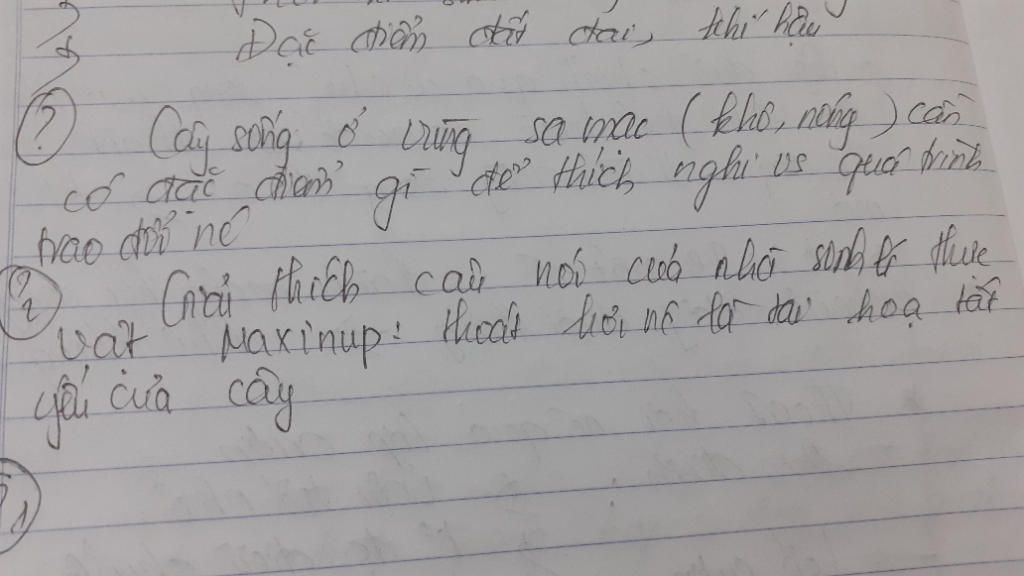 Đặc điểm đất đai, khí hậu
? Cây sống ở vùng sa mạc (khô, nóng) cần
có đặc điểm gì để thích nghi vs quá trình
trao đổi nc
?2 Giải thích câu nói của nhà sinh lí thực
vật Maxinup: thoát hơi nc là tai hoạ tất
yếu của cây
?1